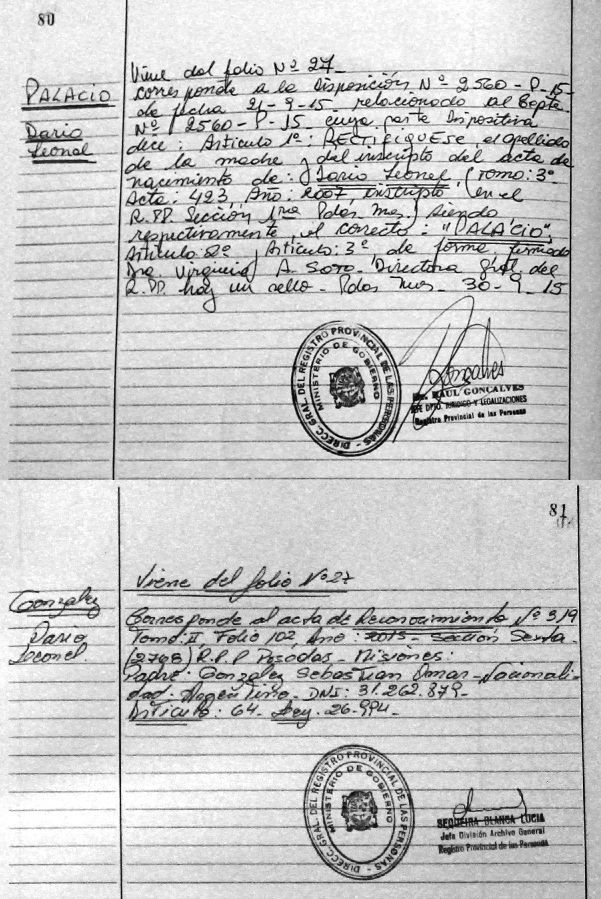 80
PALACIO
Dario
Leonel
Viene del folio Nº 27-
corresponde a la Disposición Nº 2560-P-15-
de fecha 21-9-15, relacionado al Expte.
Nº 2560-P-15 cuya parte Dispositiva
dice: Articulo 1º: RECTIFIQUESE, el apellido
de la madre y del inscripto del acta de
nacimiento de: Dario Leonel, (Tomo: 3º
Acta: 423, Año: 2007 inscripto en el
R.PP. Sección 1ra Pdas, Mnes.) siendo
respectivamente, el correcto: "PALACIO"
Articulo 2º, Articulo: 3º de forma, firmado
Dra. Virginia A. Soto. Directora Gral. del
R.PP. hay un sello- Pdas Mnes- 30-9-15
DIRECC. GRAL. DEL REGISTRO PROVINCIAL DE LAS PERSONAS
MINISTERIO DE GOBIERNO
RAUL GONCALVES
JEFE DPTO. JURIDICO Y LEGALIZACIONES
Registro Provincial de las Personas
81
Gonzalez
Dario
Leonel.
Viene del folio Nº 27
Corresponde al acta de Reconocimiento Nº 319
Tomo: II Folio 102 Año: 2015- Sección Sexta-
(2768) R.P.P Posadas- Misiones:
Padre: Gonzalez Sebastian Omar- Nacionali-
dad- Argentino- DNI: 31.262.879-
Articulo: 64- Ley. 26.994-
DIRECC. GRAL. DEL REGISTRO PROVINCIAL DE LAS PERSONAS
MINISTERIO DE GOBIERNO
SEQUEIRA BLANCA LUCIA
Jefa División Archivo General
Registro Provincial de las Personas